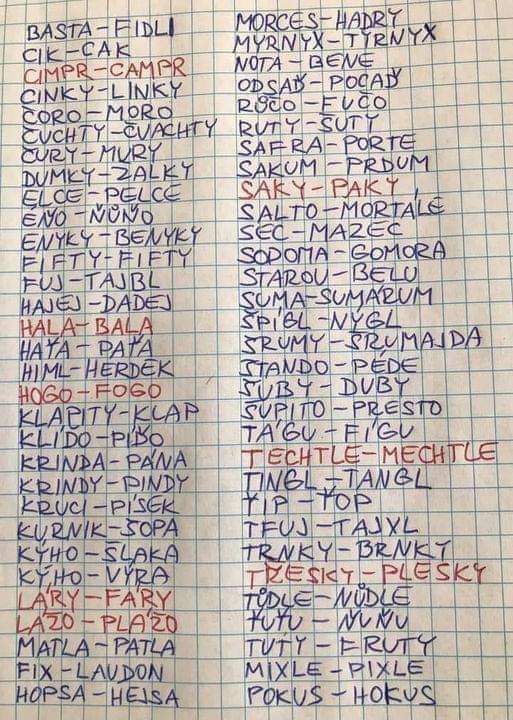 BASTA-FIDLI
CIK-CAK
CIMPR-CAMPR
CINKY-LINKY
CORO-MORO
ČUCHTY-ČVACHTY
ČURY-MURY
DUMKY-ŽALKY
ELCE-PELCE
EŇO-ŇUŇO
ENYKY-BENYKY
FIFTY-FIFTY
FUJ-TAJBL
HAJEJ-DADEJ
HALA-BALA
HAŤA-PAŤA
HIML-HERDEK
HOGO-FOGO
KLAPITY-KLAP
KLÍDO-PÍĎO
KRINDA-PÁNA
KRINDY-PINDY
KRUCI-PÍSEK
KURNIK-ŠOPA
KÝHO-ŠLAKA
KÝHO-VÝRA
LÁRY-FÁRY
LÁŽO-PLÁŽO
MATLA-PATLA
FIX-LAUDON
HOPSA-HEJSA
MORCES-HADRY
MYRNYX-TYRNYX
NOTA-BENE
ODSAĎ-POCAĎ
RÓČO-FUČO
RUTY-ŠUTY
SAFRA-PORTE
SAKUM-PRDUM
SAKY-PAKY
SALTO-MORTÁLE
SEC-MAZEC
SODOMA-GOMORA
STAROU-BELU
SUMA-SUMÁRUM
ŠPÍGL-NÝGL
ŠRUMY-ŠRUMAJDA
ŠTANDO-PÉDE
ŠUBY-DUBY
ŠUPITO-PRESTO
TÁGU-FÍGU
TECHTLE-MECHTLE
TINGL-TANGL
TIP-TOP
TFUJ-TAJXL
TRNKY-BRNKY
TŘESKY-PLESKY
TŮDLE-NŮDLE
ŤUŤU-ŇUŇU
TUTY-FRUTY
MIXLE-PIXLE
POKUS-HOKUS